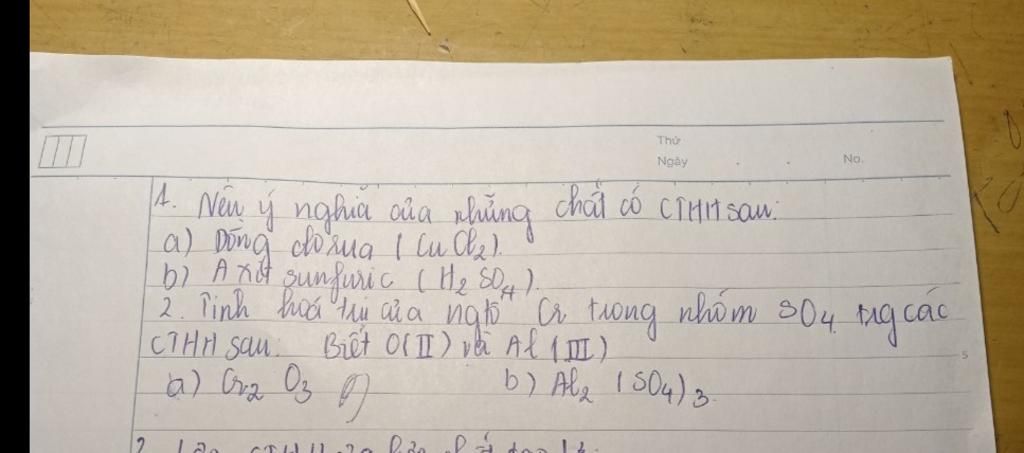 Thứ
Ngày . . No.
1. Nêu ý nghĩa của những chất có CTHH sau:
a) Đồng clorua (CuCl₂).
b) Axit sunfuric (H₂SO₄).
2. Tính hoá trị của ngtố Cr trong nhóm SO₄ trg các
CTHH sau: Biết O(II) và Al (III)
5
a) Cr₂ O₃ b) Al₂ (SO₄)₃.